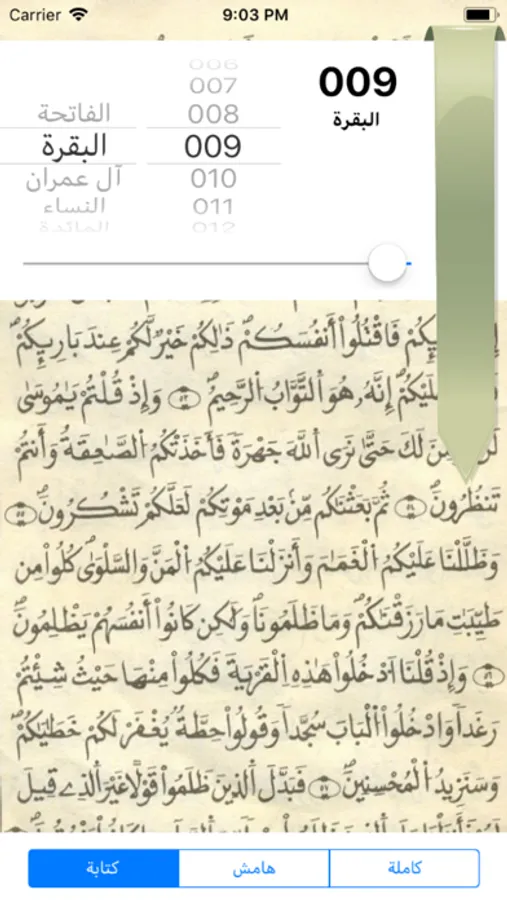 Carrier 9:03 PM
009
البقرة
006
007
الفاتحة 008
البقرة 009
آل عمران 010
النساء 011
المائدة 012
فَاقْتُلُوٓا۟ أَنفُسَكُمْ ذَٰلِكُمْ خَيْرٌ لَّكُمْ عِندَ بَارِئِكُمْ
إِنَّهُۥ هُوَ ٱلتَّوَّابُ ٱلرَّحِيمُ وَإِذْ قُلْتُمْ يَٰمُوسَىٰ
لَكَ حَتَّىٰ نَرَى ٱللَّهَ جَهْرَةً فَأَخَذَتْكُمُ ٱلصَّٰعِقَةُ وَأَنتُمْ
تَنظُرُونَ ثُمَّ بَعَثْنَٰكُم مِّنۢ بَعْدِ مَوْتِكُمْ لَعَلَّكُمْ تَشْكُرُونَ
وَظَلَّلْنَا عَلَيْكُمُ ٱلْغَمَٰمَ وَأَنزَلْنَا عَلَيْكُمُ ٱلْمَنَّ وَٱلسَّلْوَىٰ كُلُوا۟ مِن
طَيِّبَٰتِ مَا رَزَقْنَٰكُمْ وَمَا ظَلَمُونَا وَلَٰكِن كَانُوٓا۟ أَنفُسَهُمْ يَظْلِمُونَ
وَإِذْ قُلْنَا ٱدْخُلُوا۟ هَٰذِهِ ٱلْقَرْيَةَ فَكُلُوا۟ مِنْهَا حَيْثُ شِئْتُمْ
رَغَدًا وَٱدْخُلُوا۟ ٱلْبَابَ سُجَّدًا وَقُولُوا۟ حِطَّةٌ يُغْفَرْ لَكُمْ خَطَٰيَٰكُمْ
وَسَنَزِيدُ ٱلْمُحْسِنِينَ فَبَدَّلَ ٱلَّذِينَ ظَلَمُوا۟ قَوْلًا غَيْرَ ٱلَّذِى قِيلَ
كاملة هامش كتابة